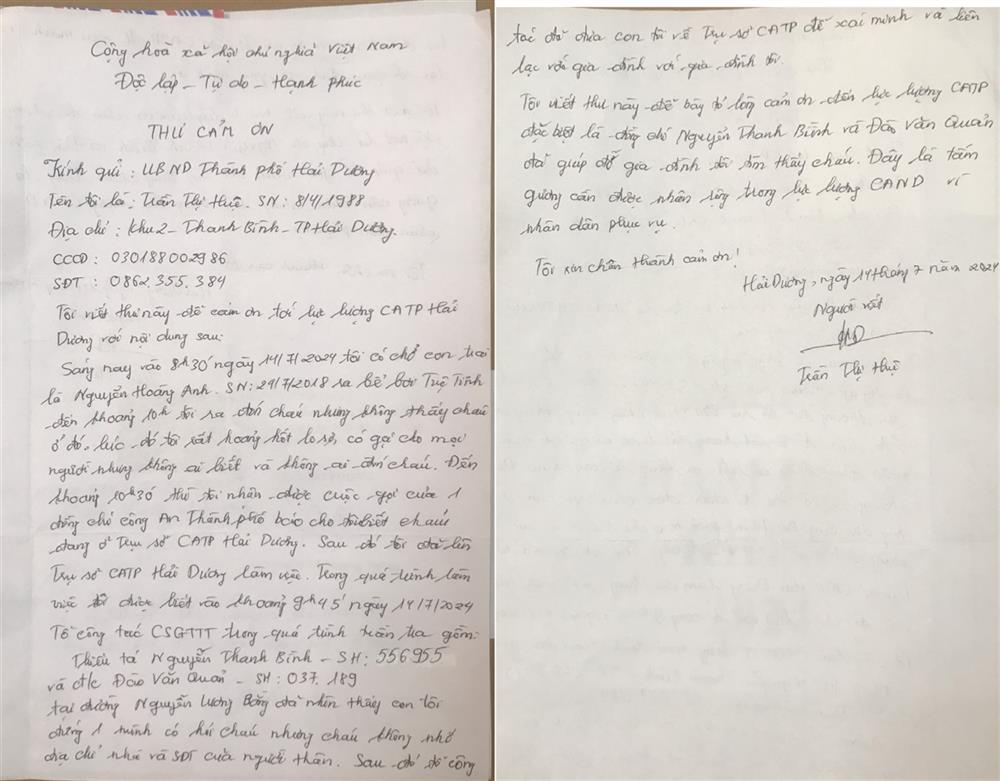 Cộng hoà xã hội chủ nghĩa Việt Nam
Độc lập - Tự do - Hạnh phúc
THƯ CẢM ƠN
Kính gửi : UBND Thành phố Hải Dương
Tên tôi là : Trần Thị Huệ. SN : 8/4/1988
Địa chỉ : Khu 2 - Thanh Bình - TP Hải Dương.
CCCD : 030188002986
SĐT : 0862.355.384
Tôi viết thư này để cảm ơn tới lực lượng CATP Hải
Dương với nội dung sau:
Sáng nay vào 8h30 ngày 14/7/2024 tôi có chở con trai
là Nguyễn Hoàng Anh. SN: 29/7/2018 ra bể bơi Tuệ Tĩnh
đến khoảng 10h tôi ra đón cháu nhưng không thấy cháu
ở đó. lúc đó tôi rất hoảng hốt lo sợ, có gọi cho mọi
người nhưng không ai biết và không ai đón cháu. Đến
khoảng 10h30 thì tôi nhận được cuộc gọi của 1
đồng chí công An Thành phố báo cho tôi biết cháu
đang ở Trụ sở CATP Hải Dương. Sau đó tôi đã lên
Trụ sở CATP Hải Dương làm việc. Trong quá trình làm
việc tôi được biết vào khoảng 9h45' ngày 14/7/2024
Tổ công tác CSGTTT trong quá trình tuần tra gồm:
Thiếu tá Nguyễn Thanh Bình - SH: 556955
và đ/c Đào Văn Quản - SH: 037.189
tại đường Nguyễn Lương Bằng đã nhìn thấy con tôi
đứng 1 mình có hỏi cháu nhưng cháu không nhớ
địa chỉ nhà và SĐT của người thân. Sau đó tổ công
tác đã đưa con tôi về Trụ sở CATP để xác minh và liên
lạc với gia đình với gia đình tôi.
Tôi viết thư này để bày tỏ lòng cảm ơn đến lực lượng CATP
đặc biệt là đồng chí Nguyễn Thanh Bình và Đào Văn Quản
đã giúp đỡ gia đình tôi tìm thấy cháu. Đây là tấm
gương cần được nhân rộng trong lực lượng CAND vì
nhân dân phục vụ.
Tôi xin chân thành cảm ơn!
Hải Dương, ngày 14 tháng 7 năm 2024
Người viết
Trần Thị Huệ